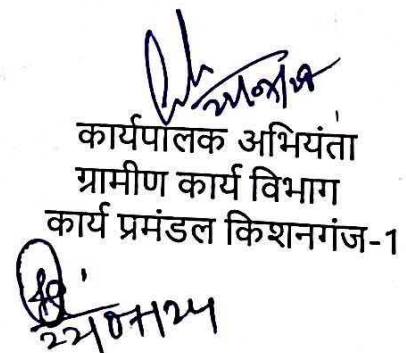 कार्यपालक अभियंता
ग्रामीण कार्य विभाग
कार्य प्रमंडल किशनगंज-1
22/07/24